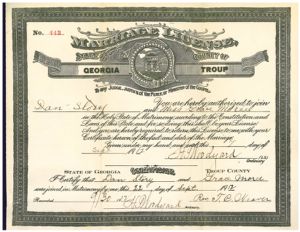 No. 443.
MARRIAGE LICENSE.
STATE OF COUNTY OF
GEORGIA TROUP
To any Judge, Justice of the Peace, or Minister of the Gospel.
You are hereby authorized to join
Dan Story and Miss
in the Holy State of Matrimony, according to the Constitution and
Laws of this State, and for so doing this shall be your License.
And you are hereby required to return this License to me, with your
Certificate hereon of the fact and date of the Marriage.
Given under my hand and seal, this
Sept
STATE OF GEORGIA TROUP COUNTY
I Certify that Dan Story and
were joined in Matrimony by me this 22 day of Sept.
Recorded 9/30